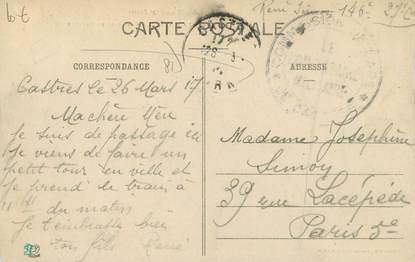 René Simoy 146e
CARTE POSTALE
CORRESPONDANCE
ADRESSE
Castres le 26 Mars 17
Ma chère
je suis de passage ici
je viens de faire un
petit tour en ville et
je prend le train à
11 du matin
je t'embrasse bien
ton fils René
Madame Josephine
Simoy
39 rue Lacépède
Paris 5e